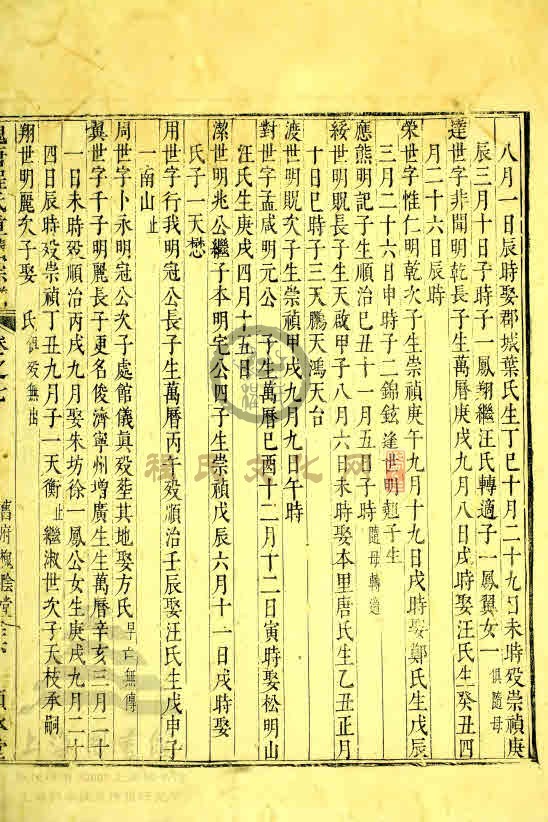 八月一日辰時娶郡城葉氏生丁巳十月二十九日未時殁崇禎庚
辰三月十日子時子一鳳翔繼汪氏轉適子一鳳翼女一俱隨母
達世字非聞明乾長子生萬曆庚戌九月八日戌時娶汪氏生癸丑四
月二十六日辰時
榮世字惟仁明乾次子生崇禎庚午九月十九日戌時娶鄭氏生戊辰
三月二十六日申時子二錦鉉逢世明翹子生
應熊明記子生順治己丑十一月五日子時隨母轉適
綏世明貺長子生天啟甲子八月六日未時娶本里唐氏生乙丑正月
十日巳時子三天鵬天鴻天台
渡世明貺次子生崇禎甲戌九月九日午時
對世字孟咸明元公子生萬曆己酉十二月十二日寅時娶松明山
汪氏生庚戌四月十五日子
潔世明兆公繼子本明宅公四子生崇禎戊辰六月十一日戌時娶
氏子一天懋
用世字行我明冠公長子生萬曆丙午殁順治壬辰娶汪氏生戊申子
一南山止
同世字卜永明冠公次子處館儀眞殁葬其地娶方氏早亡無傳
冀世字千子明麗長子更名俊濟寧州增廣生生萬曆辛亥三月二十
一日未時殁順治丙戌九月娶朱坊徐一鳳公女生庚戌九月二十
四日辰時殁崇禎丁丑九月子一天衡止繼淑世次子天枝承嗣
翔世明麗次子娶 氏俱殁無出
卷之七 舊府槐陰堂